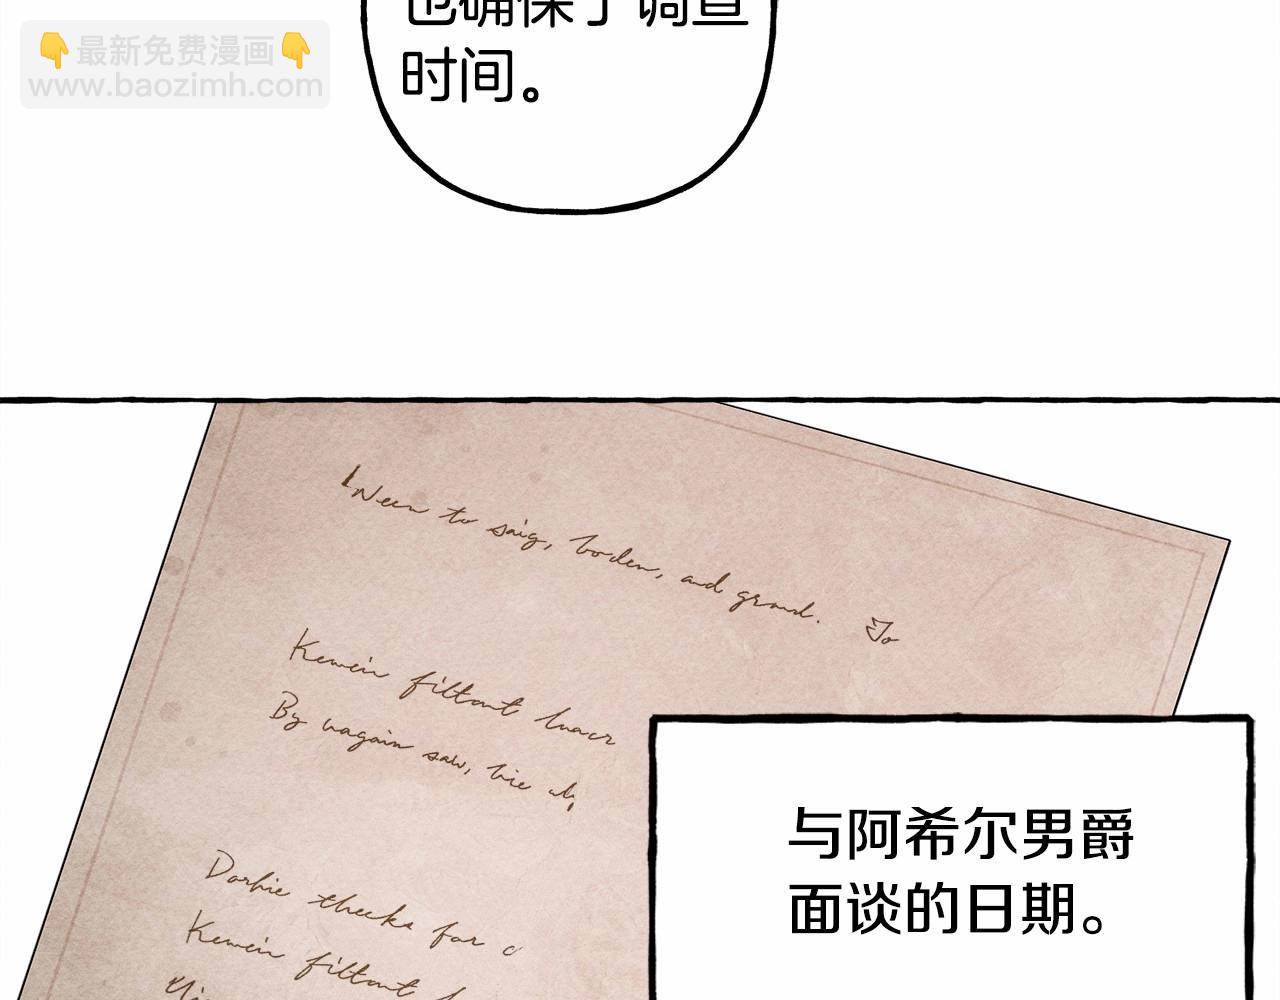 也确保了调查
时间。
👇最新免费漫画👇
www.baozimh.com
Neen to saig, boden, and grand. To
Kewein filtont
By uagain saw, hie
Darhie thecks for
Kewein filtont
与阿希尔男爵
面谈的日期。